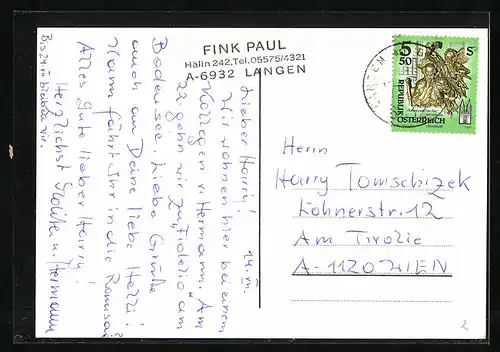 FINK PAUL
Hälin 242, Tel. 05575/4321
A-6932 LANGEN
14. VII.
Lieber Harry!
Wir wohnen hier bei einem
Kollegen v. Hermann. Am
22. gehn wir zu „Fidelio" am
Bodensee. Liebe Grüße
auch an Deine liebe Helli!
Wann fährt Ihr in die Ramsau?
Alles Gute lieber Harry!
Herzlichst u. Hermann
5 S
50
REPUBLIK
ÖSTERREICH
LANGEN
Herrn
Harry Tomschizek
Lohnerstr. 12
Am Tivolie
A-1120 WIEN
2